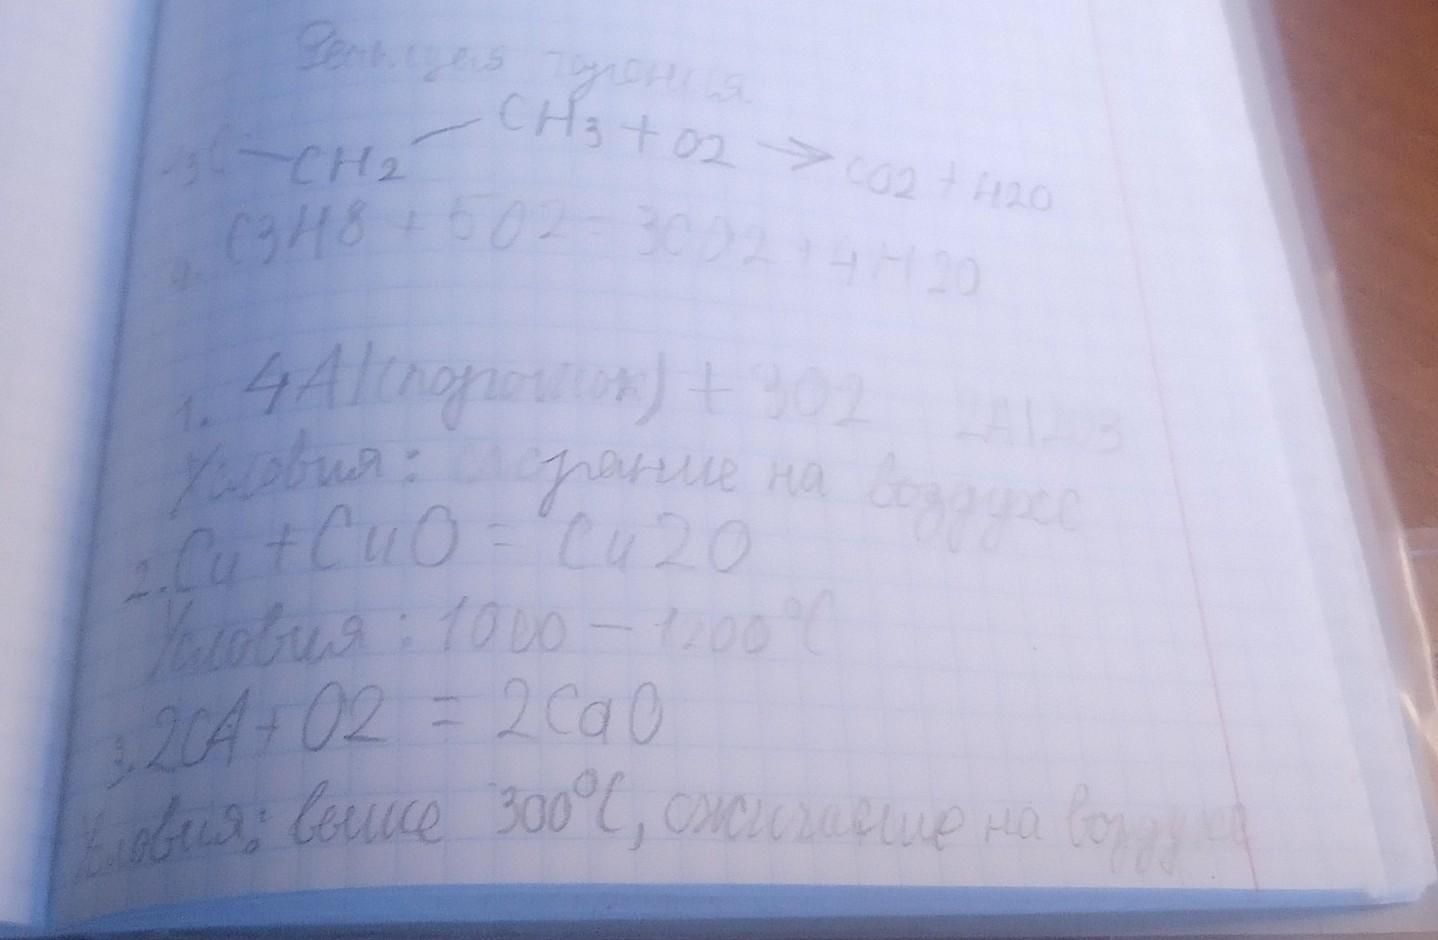 Реакция горения
3C — CH2 — CH3 + O2 → CO2 + H2O
4. C3H8 + 5O2 = 3CO2 + 4H2O
1. 4Al(порошок) + 3O2 2Al2O3
Условия: сгорание на воздухе
2. Cu + CuO = Cu2O
Условия: 1000 — 1200°C
3. 2CA + O2 = 2CaO
Условия: выше 300°C, сжигание на воздухе